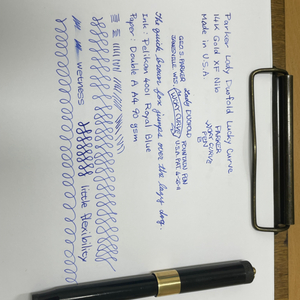 Parker Lady Duofold Lucky Curve
14K Gold XF nib
Made in U.S.A.
PARKER
LUCKY CURVE
PEN
GEO.S. PARKER Lady DUOFOLD FOUNTAIN PEN
JANESVILLE WIS. LUCKY CURVE U.S.A. PAT.
The quick brown fox jumps over the lazy dog.
Ink: Pelikan 4001 Royal Blue
Paper: Double A A4 90 gsm
wetness
little flexibility